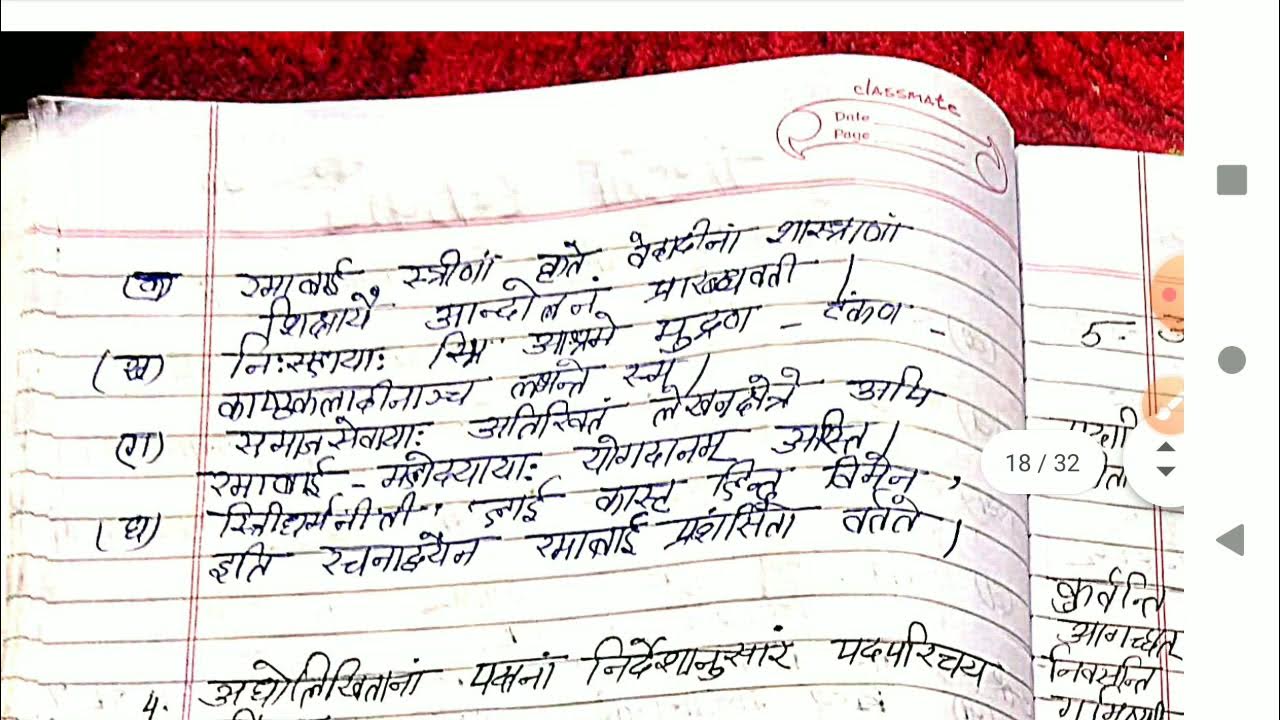 classmate
Date
Page
(क) रमाबाई स्त्रीणां कृते वेदादीनां शास्त्राणां
शिक्षायै आन्दोलनं प्रारब्धवती ।
(ख) नि:सहाया: स्त्रि आश्रमे मुद्रण - टंकण -
काष्ठकलादीनाञ्च लभन्ते स्म ।
(ग) समाजसेवाया: अतिरिक्तं लेखनक्षेत्रे अपि
रमाबाई - महोदयाया: योगदानम अस्ति ।
(घ) स्त्रिधर्मनीती ' हाई कास्ट हिन्दू विमेन '
इति रचनाद्वयेन रमाबाई प्रशंसिता वर्तते ।
4. अधोलिखितानां पदानां निर्देशानुसारं पदपरिचय
5.
18 / 32
कुर्वन्ति
आगच्छत
निवसन्ति